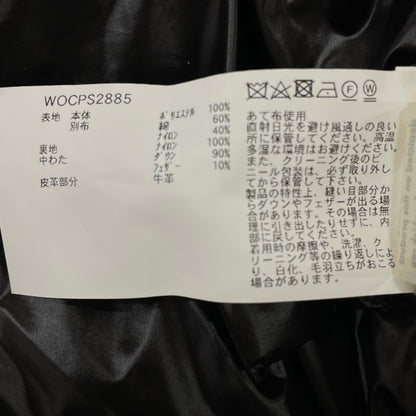 WOCPS2885
表地 本体 ポリエステル 100%
別布 綿 60%
ナイロン 40%
裏地 ナイロン 100%
中わた ダウン 90%
フェザー 10%
皮革部分 牛革
F W
あて布使用
直射日光を避け風通しの良い
所に保管してください。高温
多湿な環境はお避けください。
また、クリーニング後のビ
ニール包装は、必ず取り外し
てから保管して下さい。
製品の特性上、縫い目部分か
らダウンやフェザーが出る場
合があります。その場合は無
理に引き出したりせずに、内
部に戻してください。
着用時の摩擦や、洗濯、ク
リーニング等の繰り返しによ
り、白化、毛羽立ちがおこる
場合があります。